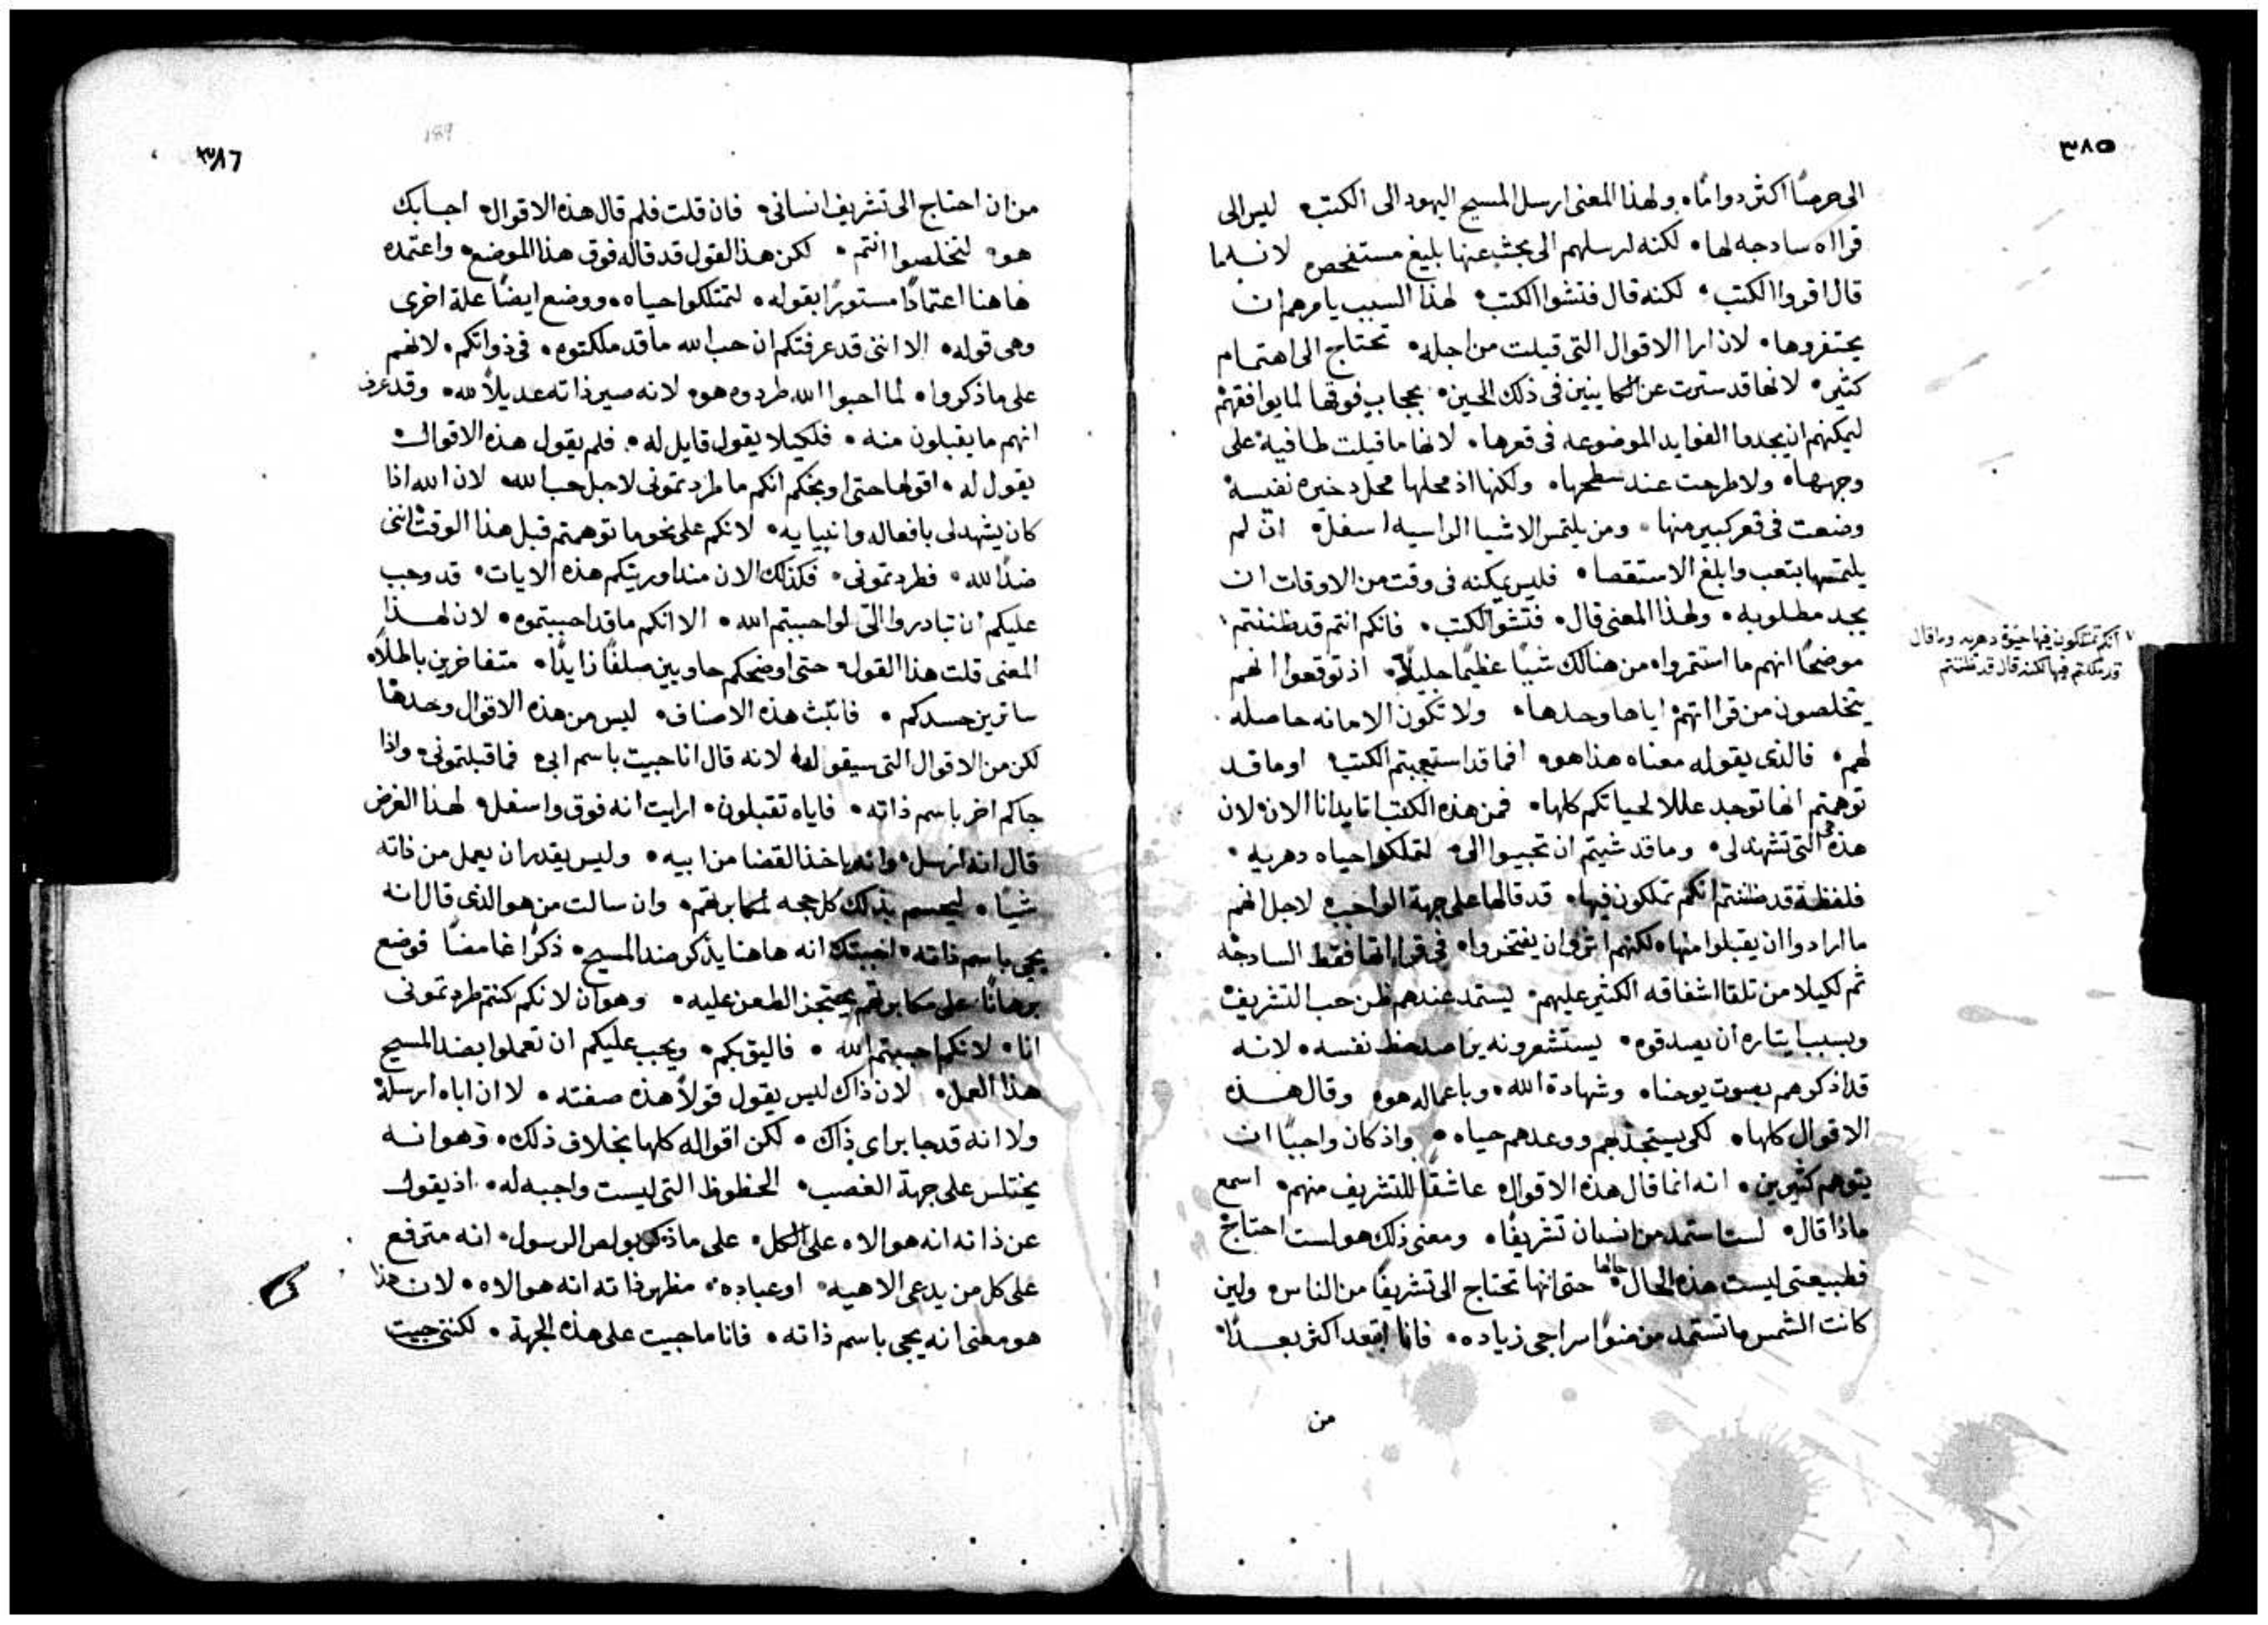 ٣٨٥
الى حرصًا اكثر دوامًا ۰ ولهذا المعنى ارسل المسيح اليهود الى الكتب ۰ ليس الى
قراه سادجه لها ۰ لكنه ارسلهم الى بحث عنها بليغ مستفحص لانه ما
قال اقروا الكتب ۰ لكنه قال فتشوا الكتب ۰ لهذا السبب يامرهم ان
يحتفروها ۰ لان ارا الاقوال التى قيلت من اجله ۰ تحتاج الى اهتمام
كثير ۰ لانها قد سترت عن الكاينين فى ذلك الحين ۰ بحجاب فوقها لما يوافقهم
ليمكنهم ان يجدوا الفوايد الموضوعه فى قعرها ۰ لانها ما قيلت طافية على
وجهها ۰ ولا طرحت عند سطحها ۰ ولكنها اذ محلها محل دخيره نفيسة
وضعت فى قعر كبير منها ۰ ومن يلتمس الاشيا الراسيه اسفل ۰ ان لم
يلتمسها بتعب وابلغ الاستقصا ۰ فليس يمكنه فى وقت من الاوقات ان
يجد مطلوبه ۰ ولهذا المعنى قال ۰ فتشوا الكتب ۰ فانكم انتم قد ظننتم
انكم تمتلكون فيها حيوة دهريه وما قال
قد ملكتم فيها لكنه قال قد ظننتم
موضحًا انهم ما استثمروا ۰ من هنالك شيًا عظيمًا جليلًا ۰ اذ توقعوا انهم
يتخلصون من قرااتهم اياها وحدها ۰ ولا تكون الامانه حاصله
لهم ۰ فالذى يقوله معناه هذا هو ۰ افما قد استعجبتم الكتب ۰ اوما قد
توهمتم انها توجد عللا لحياتكم كلها ۰ فمن هذه الكتب اتايدانا الان ۰ لان
هذه هى التى تشهد لى ۰ وما قد شيتم ان تجيبوا الى ۰ لتملكوا حياه دهريه ۰
فلفظة قد ظننتم انكم تملكون فيها ۰ قد قالها على جهة الواجب ۰ لاجل انهم
ما ارادوا ان يقبلوا منها ۰ لكنهم اثروا ان يفتخروا ۰ فى قرااتها فقط السادجه
ثم لكيلا من تلقا اشفاقه الكثير عليهم ۰ ليستمد عندهم ظن حب التشريف
وبسبب ايثاره ان يصدقوه ۰ يستشعرونه يراصد حظ نفسه ۰ لانه
قد اذكرهم بصوت يوحنا ۰ وشهادة الله ۰ وباعماله هو ۰ وقال هذه
الاقوال كلها ۰ لكى يستجذبهم ووعدهم حياه ۰ واذ كان واجبًا ان
يتوهم كثيرين ۰ انه انما قال هذه الاقوال ۰ عاشقًا للتشريف منهم ۰ اسمع
ماذا قال ۰ لست استمد من انسان تشريفًا ۰ ومعنى ذلك هو لست احتاج
فطبيعتى ليست هذه الحال حالها ۰ حتى انها تحتاج الى تشريفًا من الناس ولين
كانت الشمس ما تستمد من ضوًا سراجى زياده ۰ فانا ابتعد اكثر بعدًا ۰
من
٣٨٦
189
من ان احتاج الى تشريف انسانى ۰ فان قلت فلم قال هذه الاقوال ۰ اجابك
هو ۰ لتخلصوا انتم ۰ لكن هذا القول قد قاله فوق هذا الموضع ۰ واعتمده
هاهنا اعتمادًا مستورًا بقوله ۰ لتمتلكوا حياه ۰ ووضع ايضًا علة اخرى
وهى قوله ۰ الا اننى قد عرفتكم ان حب الله ما قد ملكتوه ۰ فى ذواتكم ۰ لانهم
على ما ذكروا ۰ لما احبوا الله طردوه هو ۰ لانه صير ذاته عديلًا لله ۰ وقد عرف
انهم ما يقبلون منه ۰ فلكيلا يقول قايل له ۰ فلم يقول هذه الاقوال
يقول له ۰ اقولها حتى اوبخكم انكم ما طردتمونى لاجل حب الله ۰ لان الله اذا
كان يشهد لى بافعاله وانبيايه ۰ لانكم على نحو ما توهمتم قبل هذا الوقت اننى
ضدًا لله ۰ فطردتمونى ۰ فكذلك الان منذ اوريتكم هذه الايات ۰ قد وجب
عليكم ان تبادروا الىّ لو احببتم الله ۰ الا انكم ما قد احببتموه ۰ لان لهذا
المعنى قلت هذا القول ۰ حتى اوضحكم حاويين صلفًا زايدًا ۰ متفاخرين باطلًا ۰
ساترين حسدكم ۰ فاثبت هذه الاصناف ۰ ليس من هذه الاقوال وحدها
لكن من الاقوال التى سيقولها ۰ لانه قال انا جيت باسم ابى ۰ فما قبلتمونى ۰ واذا
جاكم اخر باسم ذاته ۰ فاياه تقبلون ۰ ارايت انه فوق واسفل ۰ لهذا الغرض
قال انه ارسل ۰ وانه ياخذ القضا من ابيه ۰ وليس يقدر ان يعمل من ذاته
شيًا ۰ ليحسم بذلك كل حجه لمكابرتهم ۰ وان سالت من هو الذى قال انه
يجى باسم ذاته ۰ اجبتك انه هاهنا يذكر ضد المسيح ۰ ذكرًا غامضًا فوضع
برهانًا على مكابرتهم يحتجز الطعن عليه ۰ وهو ان لانكم كنتم طردتمونى
انا ۰ لانكم احببتم الله ۰ فاليق بكم ۰ ويجب عليكم ان تعملوا بضد المسيح
هذا العمل ۰ لان ذاك ليس يقول قولًا هذه صفته ۰ لا ان اباه ارسله
ولا انه قد جا براى ذاك ۰ لكن اقواله كلها بخلاف ذلك ۰ وهو انه
يختلس على جهة الغصب ۰ الحظوظ التى ليست واجبه له ۰ اذ يقول
عن ذاته انه هو الاه على الكل ۰ على ما ذكر بولص الرسول ۰ انه مترفع
على كل من يدعى الاهيه ۰ او عباده ۰ مظهر ذاته انه هو الاه ۰ لان هذا
هو معنى انه يجى باسم ذاته ۰ فانا ما جيت على هذه الجهة ۰ لكننى جيت